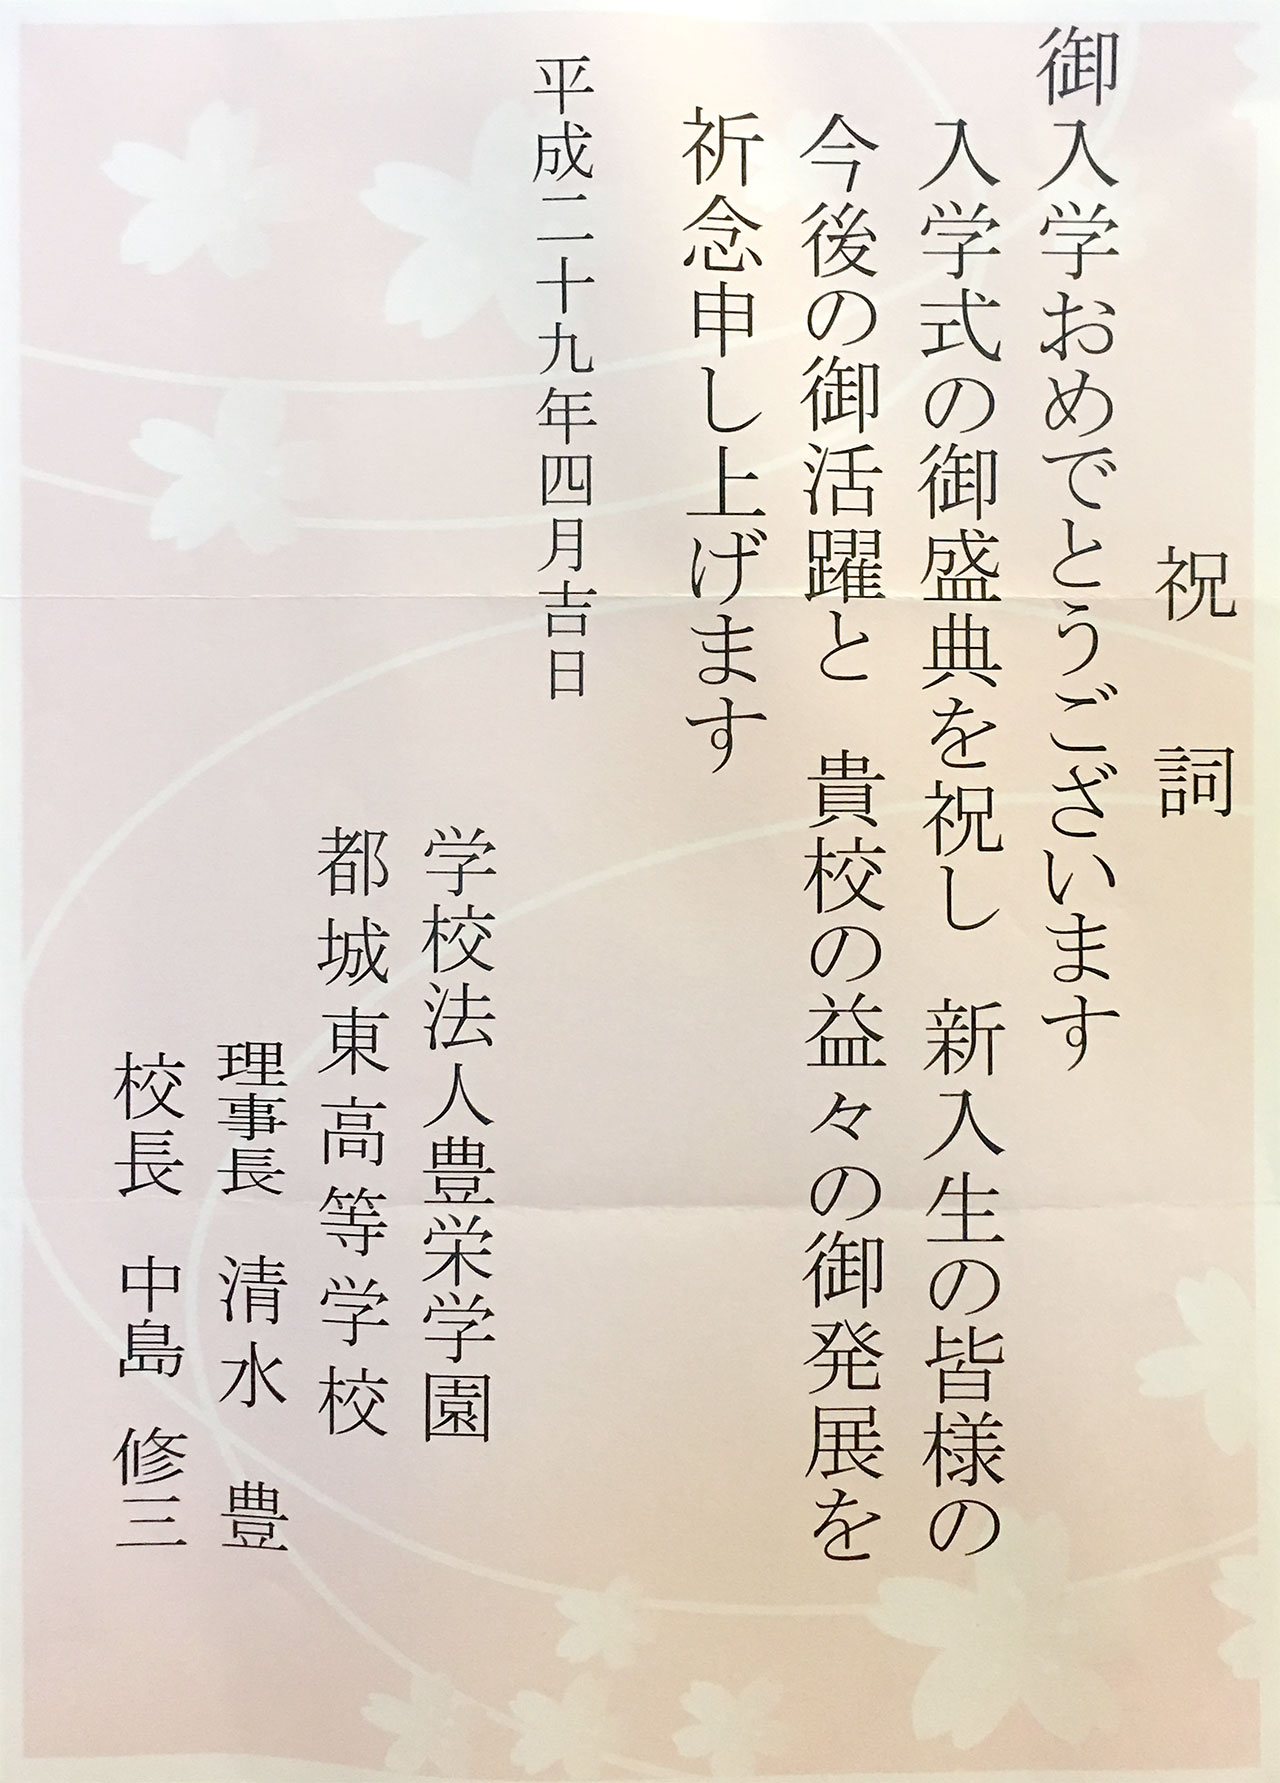 祝　詞
御入学おめでとうございます
入学式の御盛典を祝し　新入生の皆様の
今後の御活躍と　貴校の益々の御発展を
祈念申し上げます
平成二十九年四月吉日
学校法人豊栄学園
都城東高等学校
理事長　清水　豊
校長　中島　修三